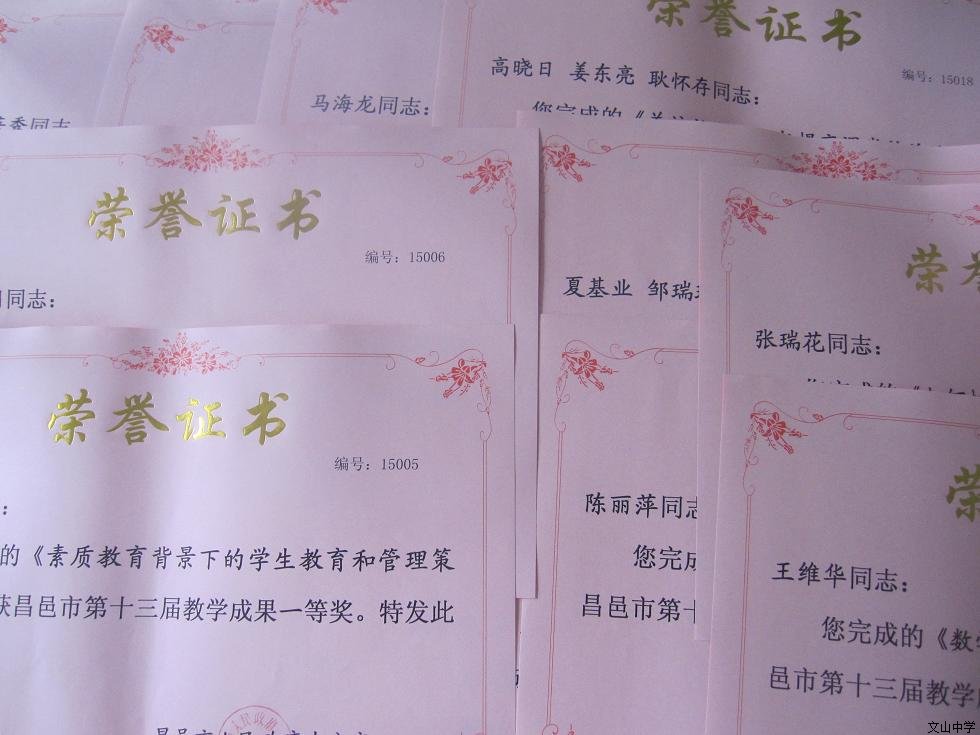 荣誉证书
编号：15018
高晓日 姜东亮 耿怀存同志：
您完成的《
马海龙同志：
秀同志
荣誉证书
编号：15006
同志：
夏基业 邹瑞
荣
张瑞花同志：
荣誉证书
编号：15005
：
的《素质教育背景下的学生教育和管理策
获昌邑市第十三届教学成果一等奖。特发此
人民政府
陈丽萍同志
您完成
昌邑市第十
荣
王维华同志：
您完成的《数学
邑市第十三届教学
文山中学